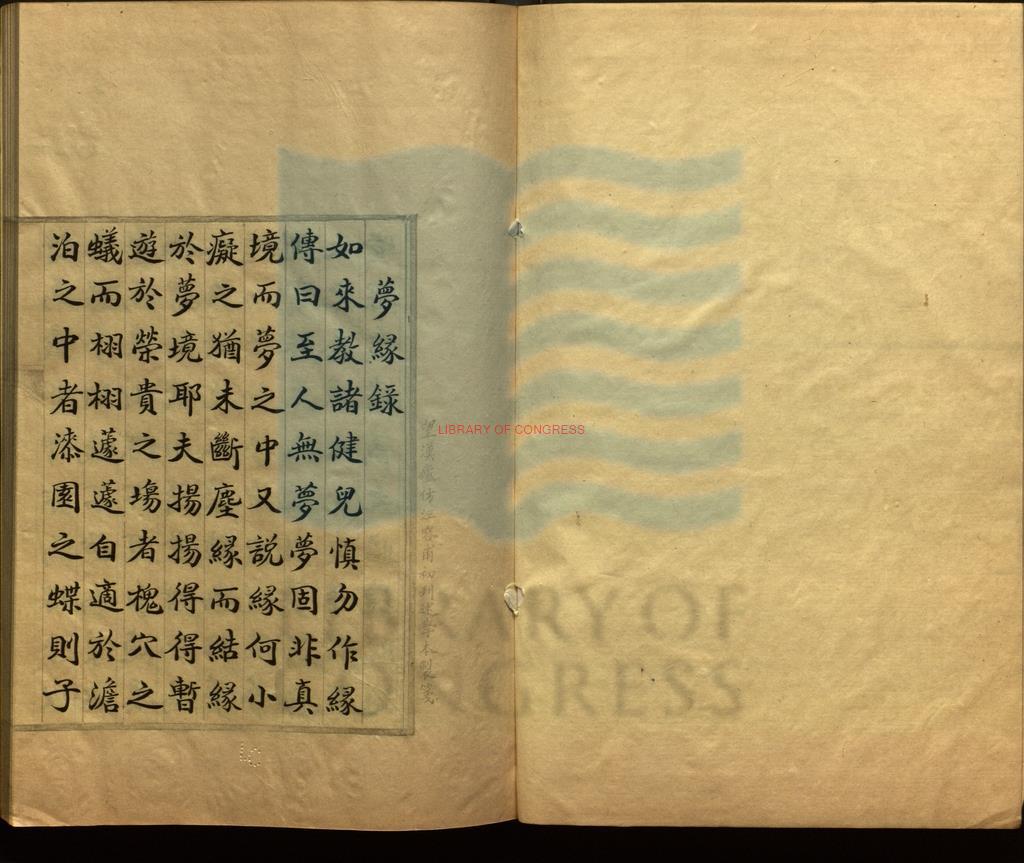 夢緣錄
如來教諸健兒慎勿作緣
傳曰至人無夢夢固非真
境而夢之中又説緣何小
癡之猶未斷塵緣而結緣
於夢境耶夫揚揚得得暫
遊於榮貴之塲者槐穴之
蟻而栩栩蘧蘧自適於澹
泊之中者漆園之蝶則子
LIBRARY OF CONGRESS
LIBRARY OF
CONGRESS